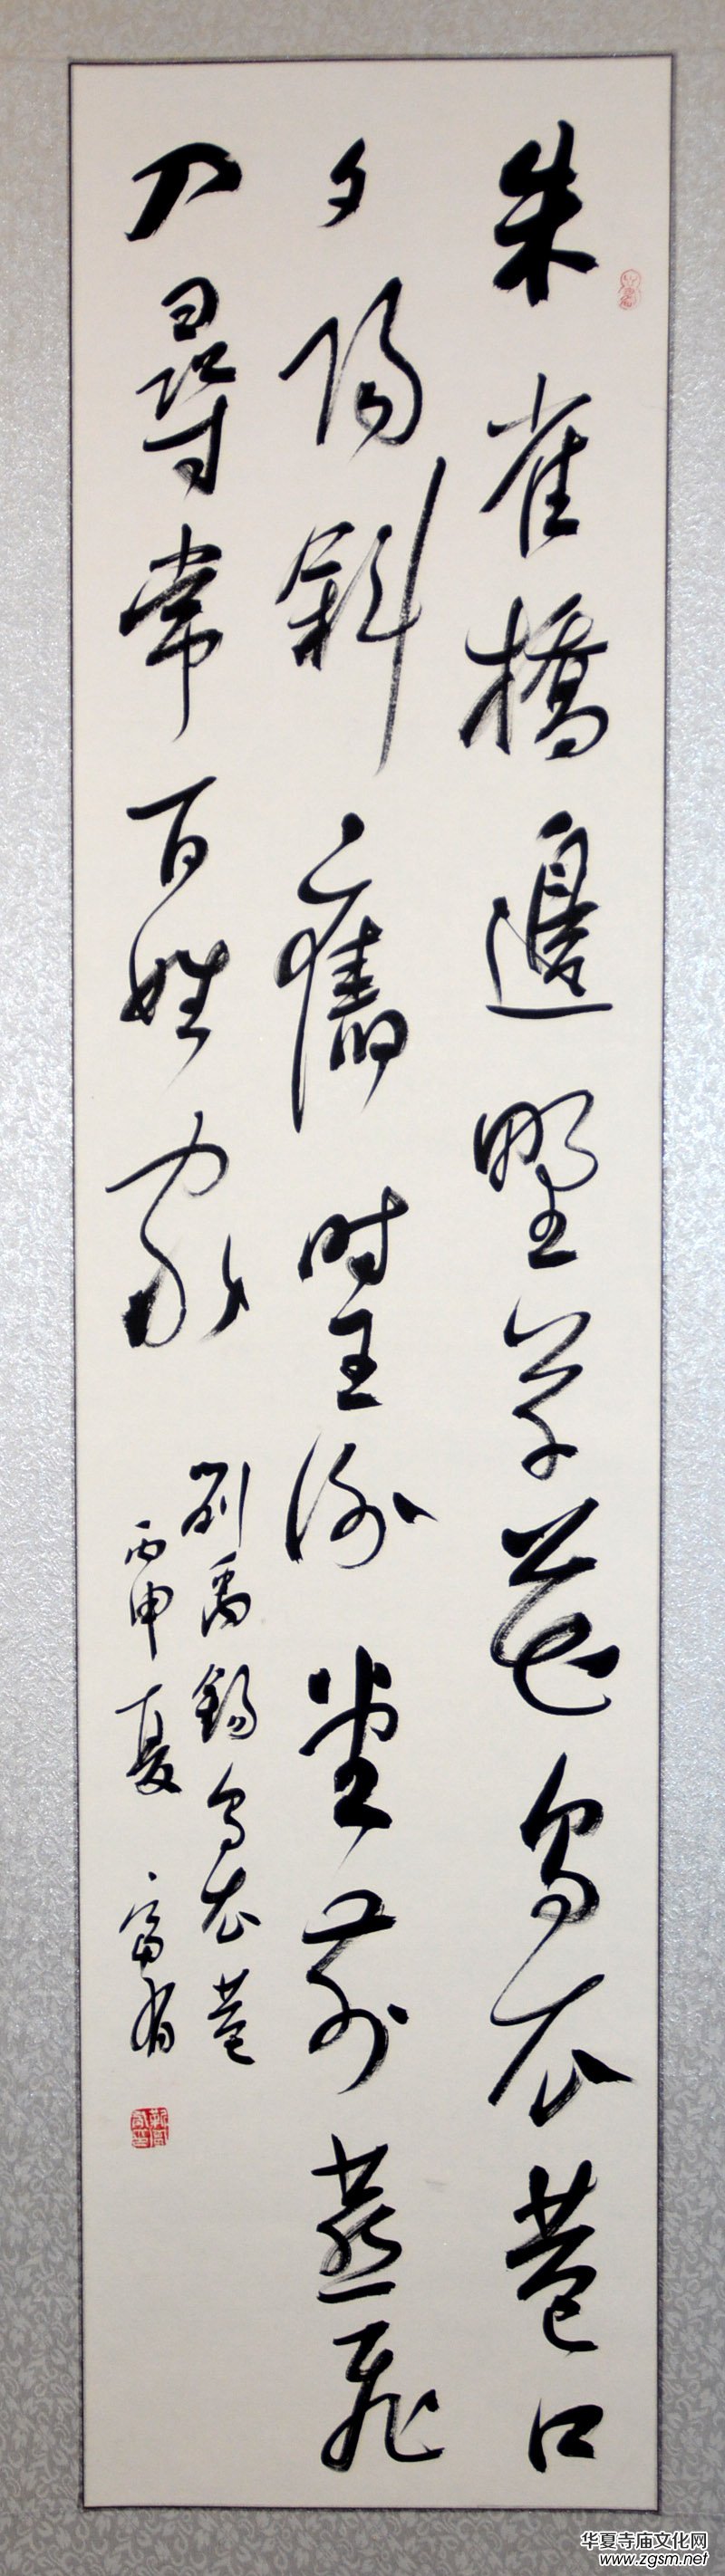 朱雀橋邊野草花烏衣巷口
夕陽斜舊时王谢堂前燕飛
入尋常百姓家
劉禹錫烏衣巷
丙申夏 富有
华夏寺庙文化网
www.zgsm.net